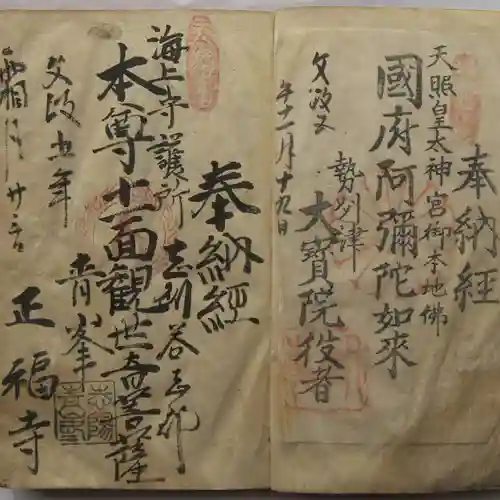 奉納経
天照皇太神宮御本地佛
國府阿彌陀如來
勢州津
大寶院役者
文政五
午十一月十九日
奉納經
海上守護所
本尊十一面観世音菩薩
青峯
正福寺
文政五年
霜月廿